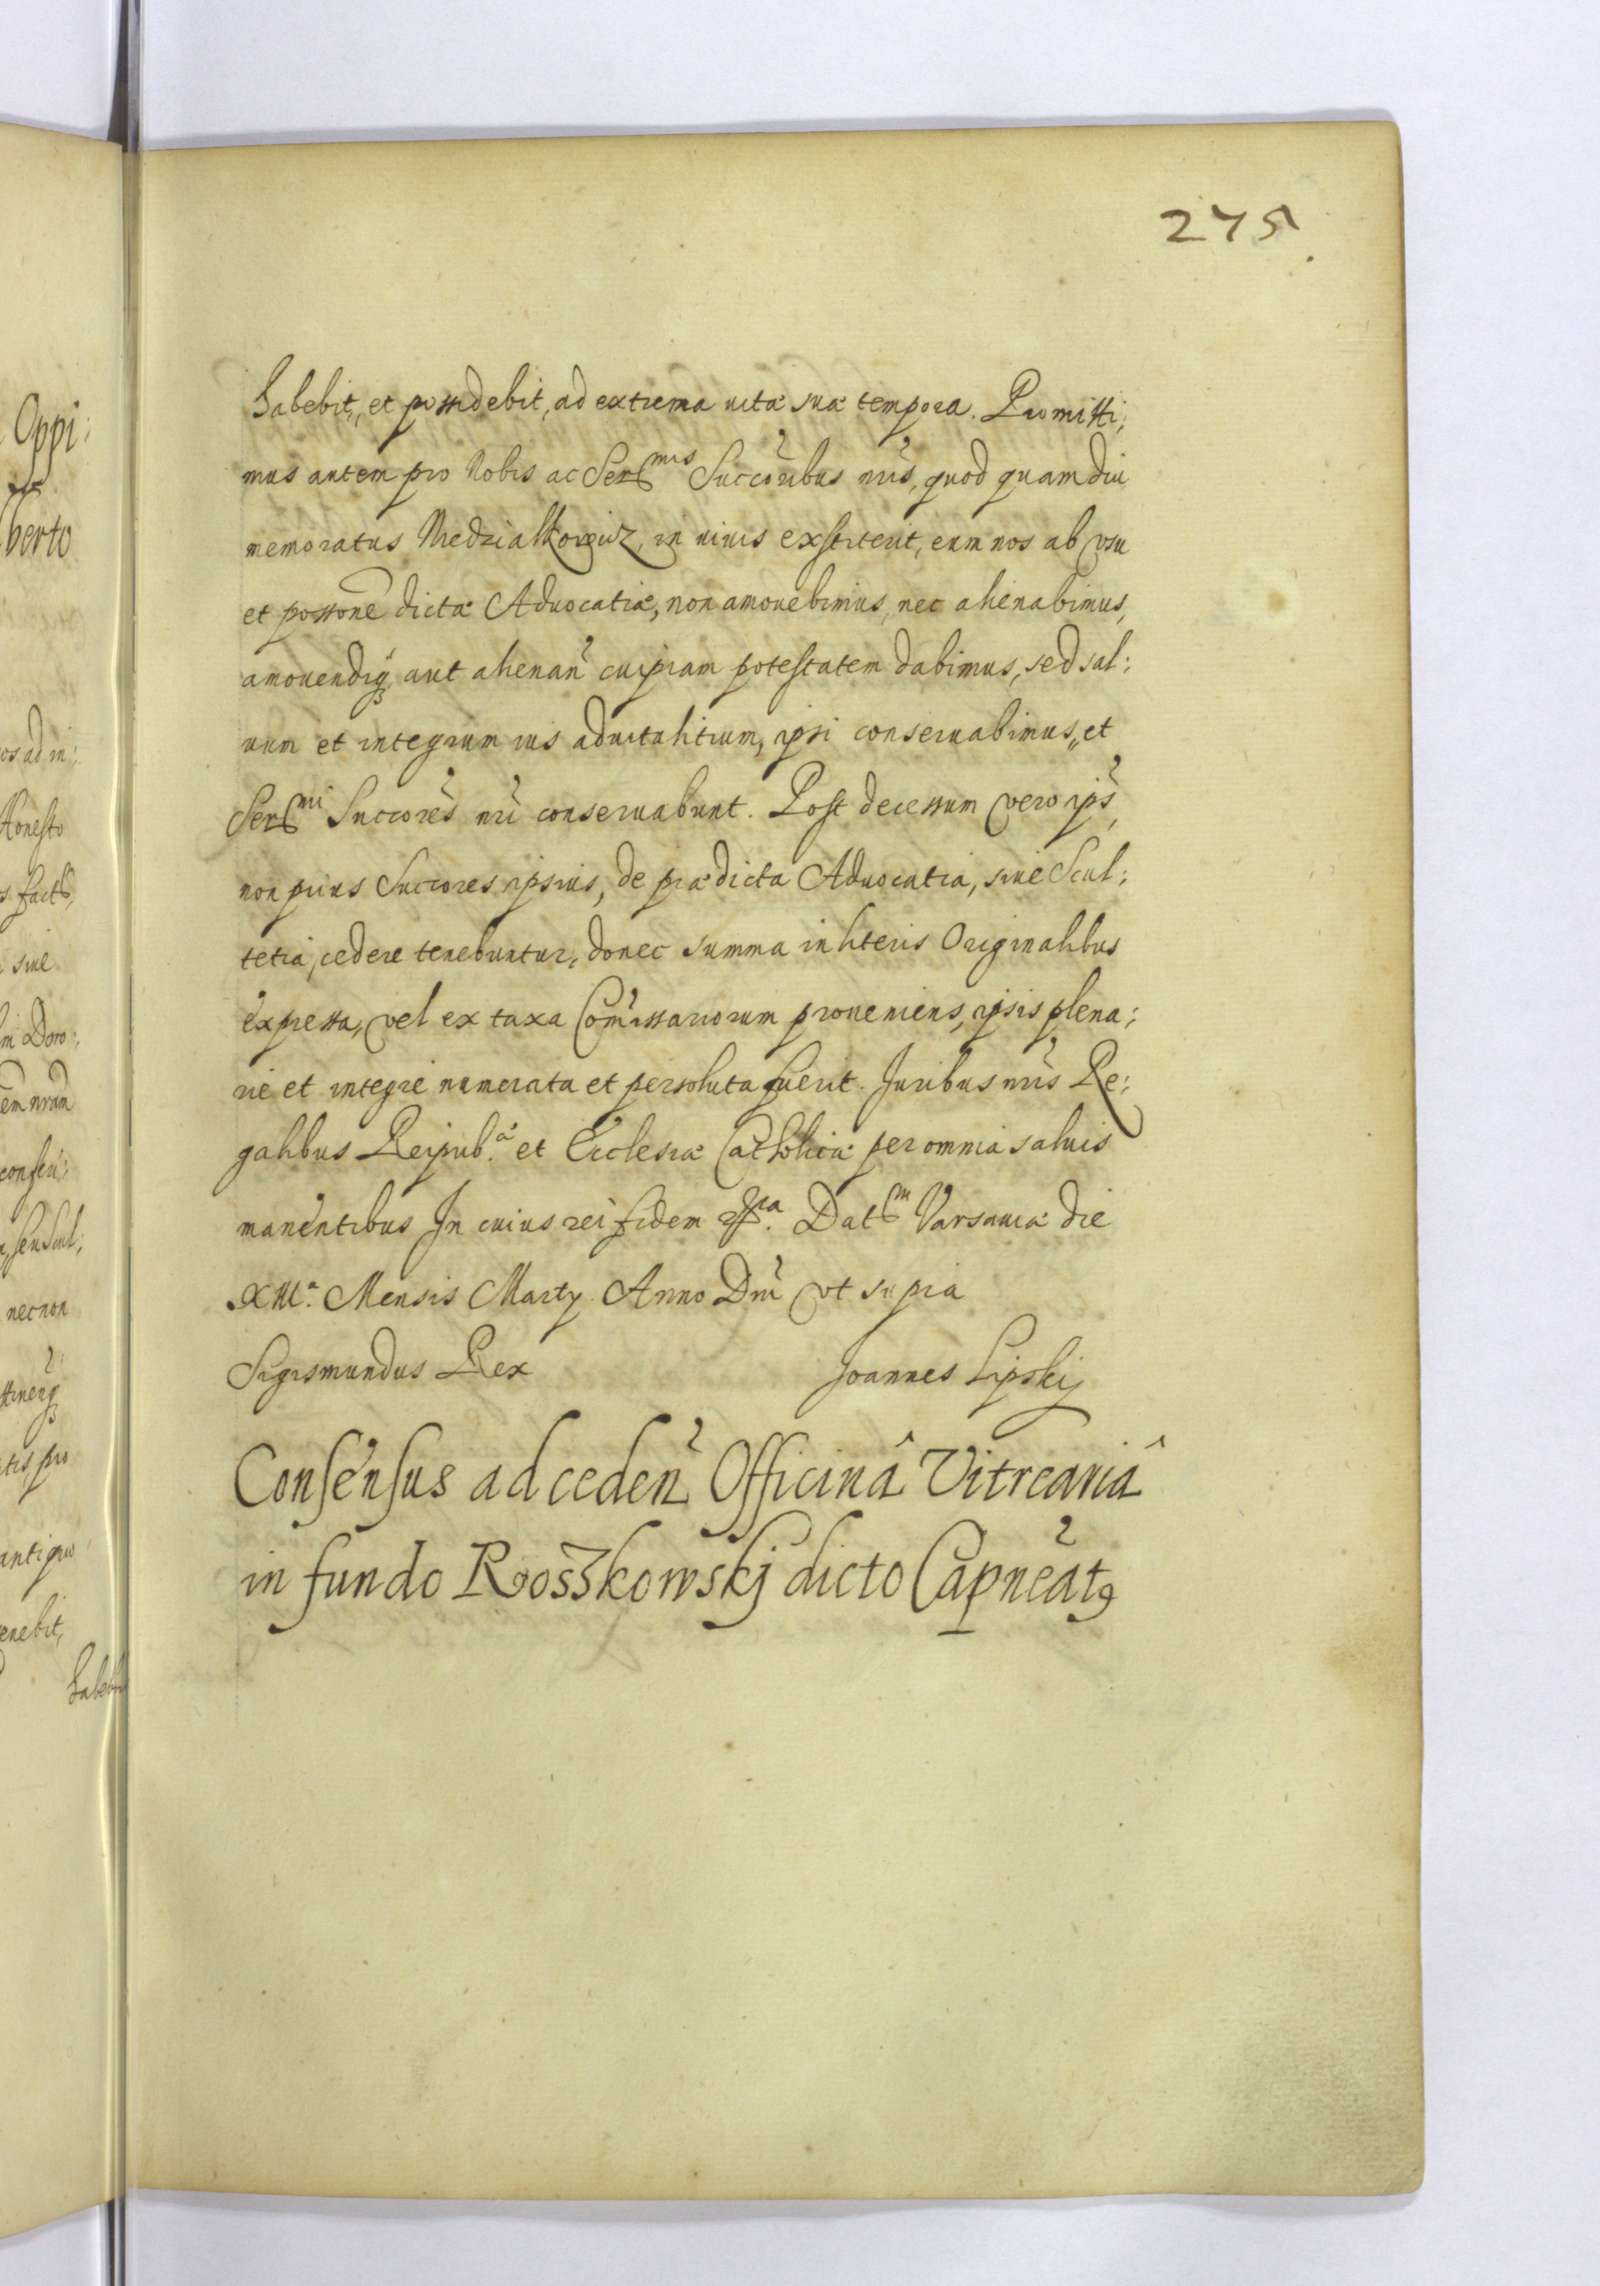 275
habebit, et possidebit, ad extrema uitæ suæ tempora. Promitti:
mus autem pro Nobis ac Ser͠mis Succoribus nris, quod quamdiu
memoratus Niedzialkowicz, in uiuis exstiterit, eum nos ab vsu
et possone dictæ Aduocatiæ, non amouebimus, nec alienabimus,
amouendiq, aut alienan cuipiam potestatem dabimus, sed sal:
uum et integrum ius aduitalitium, ipsi conseruabimus, et
Ser͠mi Succores nri conseruabunt. Post decessum vero ips,
non prius Succores ipsius, de prædicta Aduocatia, siue Scul:
tetia, cedere tenebuntur, donec summa in literis Originalibus
expressa, vel ex taxa Comissariorum proueniens, ipsis plena:
rie et integre numerata et persoluta fuerit. Juribus nris Re:
galibus Reipub.æ et Ecclesiæ Catholicæ per omnia saluis
manentibus In cuius rei fidem Dat͠m Varsauiæ die
XIII.a Mensis Martij. Anno Dni vt supra
Sigismundus Rex Joannes Lipskij
Consensus ad ceden Officinâ Vitreariâ
in fundo Roszkowskj dicto Capneat9
Oppi:
berto
os ad in:
Honesto
s fact
siue
m Doro:
em nram
conferi:
seu Scul:
necnon
ttineng
tis pro
antiquo
enebit,
habebit